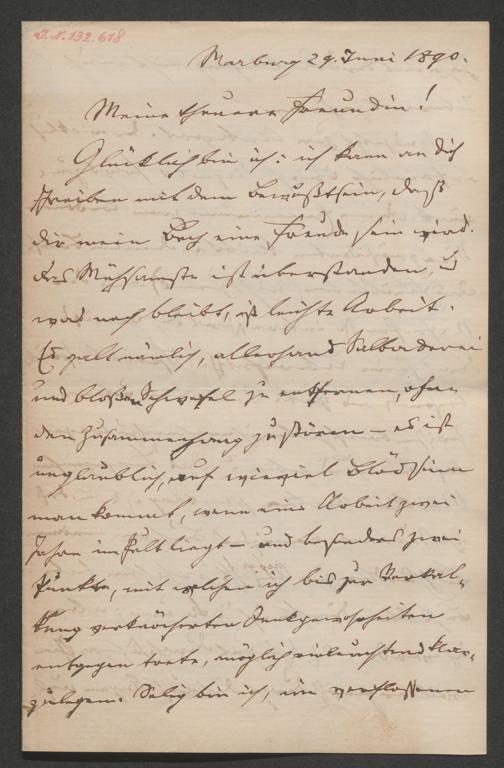 I.N. 132.618
Marburg 29. Juni 1890.
Meine theuere Freundin!
Glücklich bin ich: ich kann an dich
schreiben mit dem Bewußtsein, daß
dir mein Buch eine Freude sein wird.
Das Mühsamste ist überstanden, u
was noch bleibt, ist leichte Arbeit.
Es galt nämlich, allerhand Salbaderei
und bloßen Schwefel zu entfernen, ohne
den Zusammenhang zu stören – es ist
unglaublich, auf wieviel Blödsinn
man kommt, wenn eine Arbeit zwei
Jahre im Pult liegt – und besonders zwei
Punkte, mit welchen ich bis zur Verkal-
kung verknöcherten Denkgewohnheiten
entgegen trete, möglich einleuchtend klar-
zulegen. Selig bin ich, im verflossenen